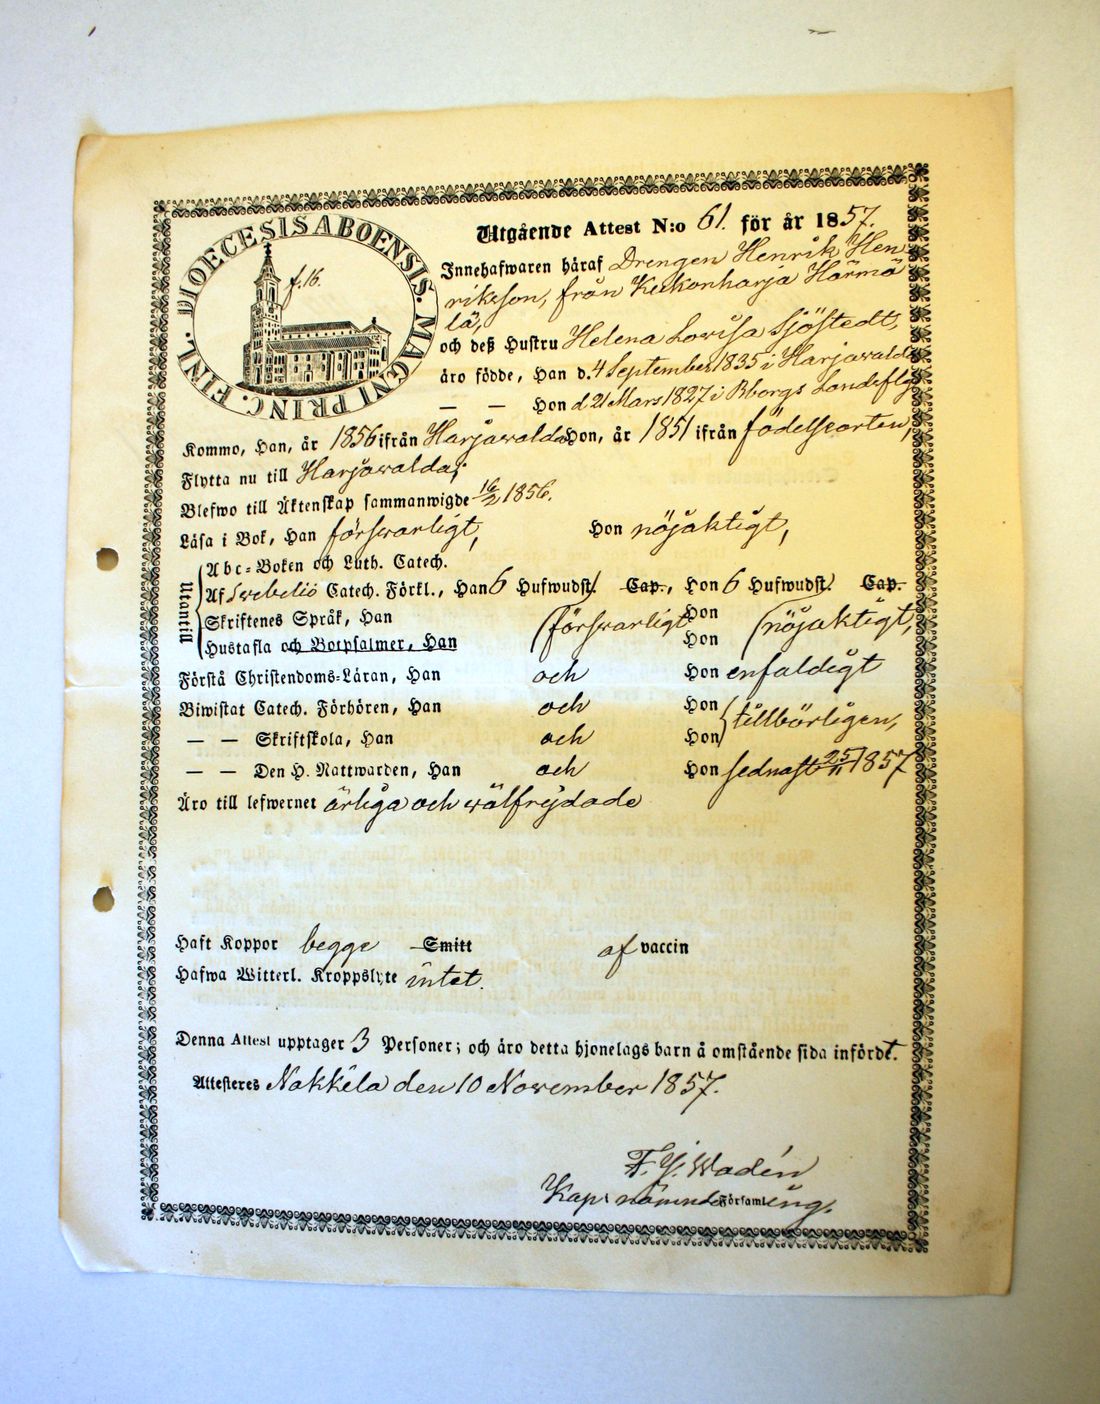 DIOECESIS ABOENSIS. MAGNI PRINC. FINL.
f. 16.
Utgående Attest N:o 61. för år 1857.
Innehafwaren häraf Drengen Henrik Hen
rikson, från Kukonharja Härmä
lä,
och deß Hustru Helena Lovisa Sjöstedt,
äro födde, Han d. 4 September 1835 i Harjawalda
— — Hon d 21 Mars 1827 i Bborgs Landsflg
Kommo, Han, år 1856 ifrån Harjawalda Hon, år 1851 ifrån födelseorten,
Flytta nu till Harjawalda;
Blefwo till Äktenskap sammanwigde 16/2 1856.
Läsa i Bok, Han försvarligt, Hon nöjaktigt,
Utantill
Abc-Boken och Luth. Catech.
Af Svebelii Catech. Förkl., Han 6 Hufwudst. Cap., Hon 6 Hufwudst. Cap.
Skriftenes Språk, Han försvarligt Hon nöjaktigt,
Hustafla och Botpsalmer, Han Hon
Förstå Christendoms-Läran, Han och Hon enfaldigt
Biwistat Catech. Förhören, Han och Hon tillbörligen,
— — Skriftskola, Han och Hon
— — Den H. Nattwarden, Han och Hon sednast 25/11 1857
Äro till lefwernet ärliga och wälfrejdade
Haft Koppor begge Smitt af vaccin
Hafwa Witterl. Kroppslyte intet.
Denna Attest upptager 3 Personer; och äro detta hjonelags barn å omstående sida infördt.
Attesteres Nakkila den 10 November 1857.
F. J. Wadén
Kap: nämnde Församling.